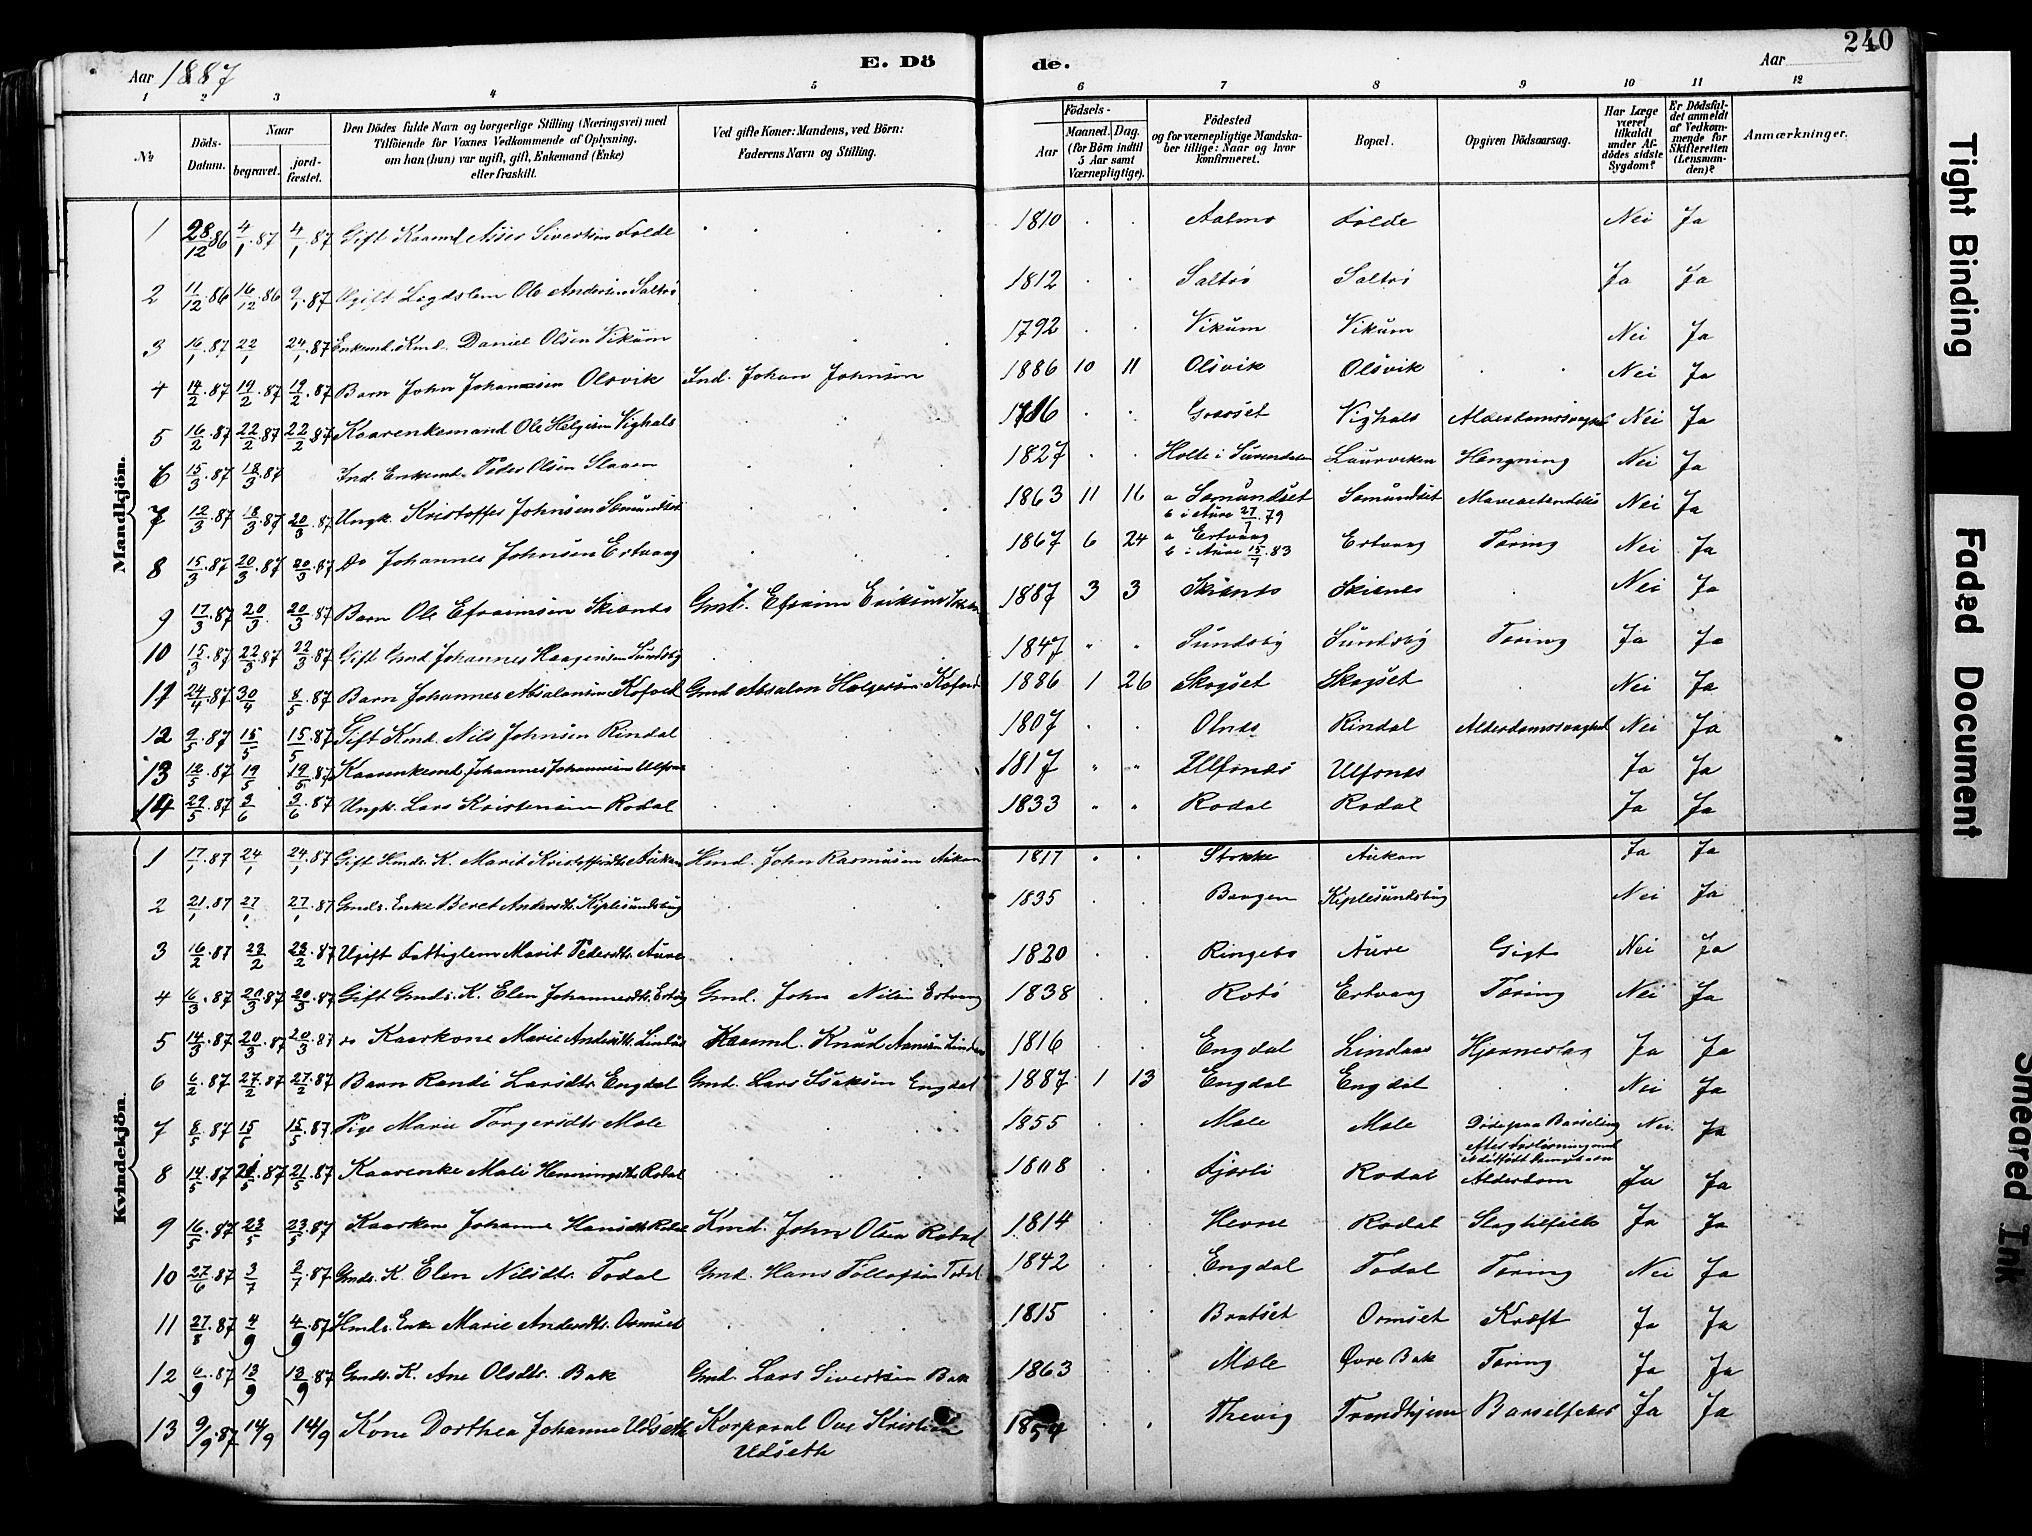 240
Aar 1887
E. Dö
de.
Aar
1 2 3 4 5 6 7 8 9 10 11 12
№
Döds-Datum.
Naar
begravet.
jordfæstet.
Den Dödes fulde Navn og borgerlige Stilling (Næringsvei) med
Tilföiende for Voxnes Vedkommende af Oplysning,
om han (hun) var ugift, gift, Enkemand (Enke)
eller fraskilt.
Ved gifte Koner: Mandens, ved Börn:
Faderens Navn og Stilling.
Födsels-
Aar
Maaned. Dag.
(for Börn indtil
5 Aar samt
Værnepligtige).
Födested
og for værnepligtige Mandska-
ber tillige: Naar og hvor
konfirmeret.
Bopæl.
Opgiven Dödsaarsag.
Har Læge
været
tilkaldt
under Af-
dödes sidste
Sygdom?
Er Dödsfal-
det anmeldt
af Vedkom-
mende for
Skifteretten
(Lensman-
den)?
Anmærkninger.
Mandkjön.
1 28/12 86 4/1 87 4/1 87 Gift Sivertsen Folde 1810 Aalmo Folde Nei Ja
2 11/12 86 16/12 86 9/1 87 Ugift Legdslem Ole Andersen Saltrö 1812 Saltrö Saltrö Ja Ja
3 16/1 87 22/1 24/1 87 Enkemd. Kmd. Daniel Olsen Vikum 1792 Vikum Vikum Nei Ja
4 14/2 87 19/2 87 19/2 87 Barn John Johansen Olsvik Ind. Johan Johnsen 1886 10 11 Olsvik Olsvik Nei Ja
5 16/2 87 22/2 87 22/2 87 Kaarenkemand Ole Helgesen Vighals Vighals Nei Ja
6 15/3 87 18/3 87 Ind. Enkemd. Peder Olsen 1827 Holte i Surendalen Laurviken Hengning Nei Ja
7 12/3 87 18/3 87 20/3 87 Ungk. Kristoffer Johnsen Semundset 1863 11 16 a Semundset Semundset Nei Ja
b i Aure 27/7 79
8 15/3 87 20/3 87 20/3 87 Do Johannes Johnsen Ertvaag 1867 6 24 a Ertvaag Ertvaag Tæring Nei Ja
b i Aure 15/7 83
9 17/3 87 20/3 20/3 87 Barn Ole Efraimsen Skisnes Gmd. Efraim Eriksen 1887 3 3 Skisnes Skisnes Nei Ja
10 15/3 87 22/3 87 22/3 87 Gift Gmd Johannes Haagensen Sundsby 1847 " " Sundsby Sundsby Tæring Ja Ja
11 24/4 87 30/4 8/5 87 Barn Johannes Absalonsen Gmd Absalon Holgersen 1886 1 26 Skogset Skogset Nei Ja
12 9/5 87 15/5 15/5 87 Gift Kmd. Nils Johnsen Rindal 1807 Rindal Alderdomssvaghed Nei Ja
13 12/5 87 19/5 19/5 87 Kaarenkemd. Johannes Johannesen Ulfsnes 1817 " " Ulfsnes Ulfsnes Ja Ja
14 29/5 87 3/6 3/6 87 Ungk. Lars Kristensen Rodal 1833 " " Rodal Rodal Ja Ja
Kvindekjön.
1 17/1 87 24/1 24/1 87 Gift Hmds. K. Marit Kristoffersdtr. Aukan Hmd. John Rasmusen Aukan 1817 " " Stokke Aukan Ja Ja
2 21/1 87 27/1 27/1 87 Gmds. Enke Beret Andersdtr. Kiplesundsbug 1835 Baagen Kiplesundsbug Nei Ja
3 16/2 87 23/2 23/2 87 Ugift Fattiglem Marit Pedersdtr. Aure 1820 Ringebo Aure Gigt Nei Ja
4 16/3 87 20/3 87 20/3 87 Gift Gmds. K. Elen Johannesdtr. Gmd. John Nilsen Ertvaag 1838 Rotö Ertvaag Tæring Nei Ja
5 14/3 87 20/3 87 20/3 87 Kaarkone Marie Andersdtr. Lindaas Kaarmd. Knud Lindaas 1816 Engdal Lindaas Hjerneslag Ja Ja
6 6/2 87 27/2 87 27/2 87 Barn Randi Larsdtr. Engdal Gmd. Lars Isaksen Engdal 1887 1 13 Engdal Engdal Nei Ja
7 8/5 87 15/5 15/5 87 Pige Marie Torgersdtr. Mele 1855 Mele Mele Döde paa Barselseng Nei Ja
efter Forlösning med
et dödfödt
8 14/5 87 21/5 87 21/5 87 Kaarenke Mali Henningsdtr. Rodal 1808 Fjærli Rodal Alderdom Ja Ja
9 16/5 87 23/5 23/5 87 Kaarkone Johanne Hansdtr. Rodal Kmd. John Olsen Rodal 1814 Hevne Rodal Slagtilfælde Ja Ja
10 27/6 87 3/7 3/7 87 Gmds. K. Elen Nilsdtr. Todal Gmd. Hans Tollefsen Todal 1842 Engdal Todal Tæring Nei Ja
11 27/8 87 4/9 4/9 87 Hmds. Enke Marie Andersdtr. Ormset 1815 Bratset Ormset Kræft Ja Ja
12 6/9 87 13/9 13/9 87 Gmds. K. Ane Olsdtr. Bak Gmd. Lars Sivertsen Bak 1863 Mele Øvre Bak Tæring Ja Ja
13 9/9 87 14/9 14/9 Kone Dorthea Johanne Udseth Korporal Ove Kristian 1854 Thevig Trondhjem Barselfeber Ja Ja
Udseth
Tight Binding
Faded Document
Smeared Ink